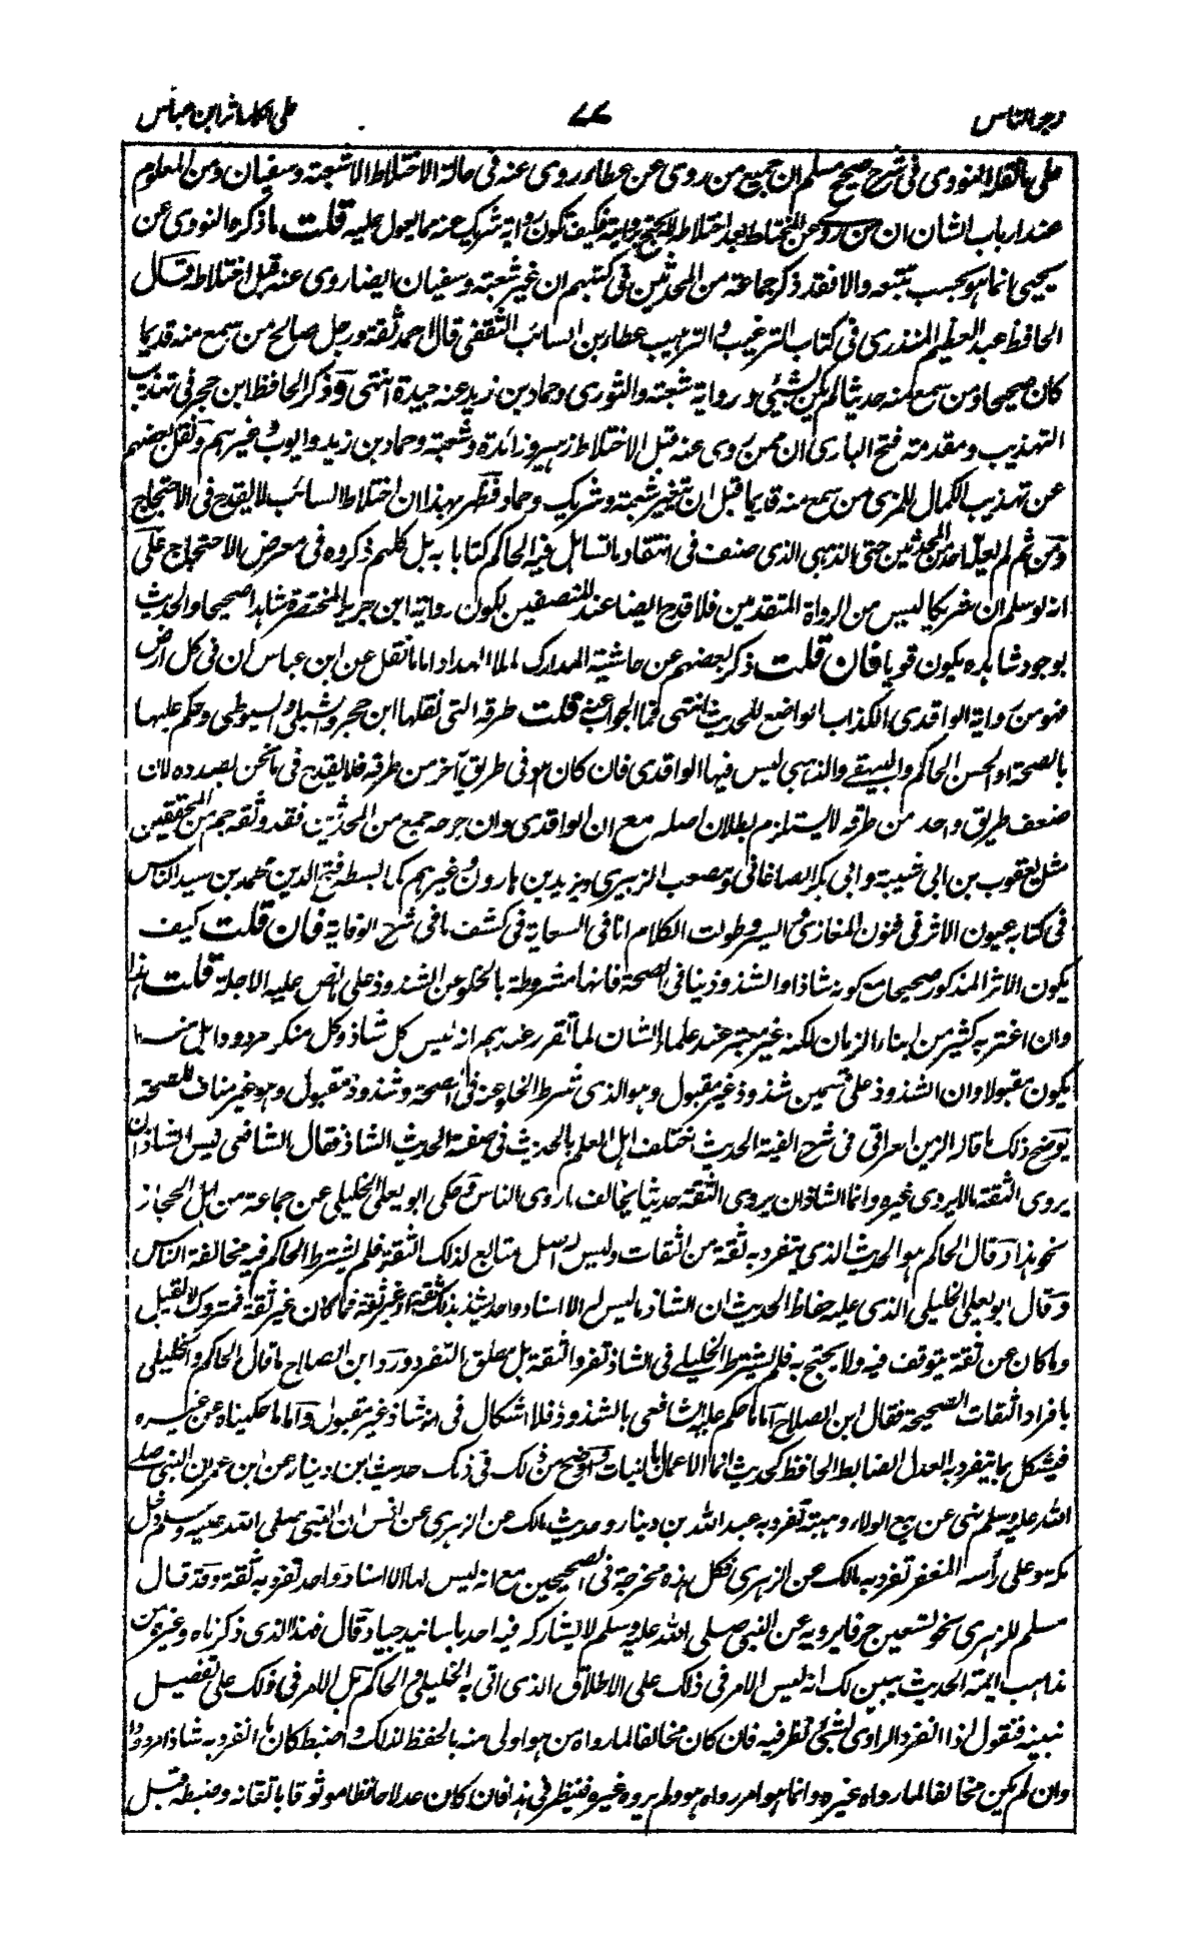 زجر الناس ٧٧ على انكار اثر ابن عباس
على ما نقله النووى فى شرح صحيح مسلم ان جميع من روى عن عطاء روى عنه فى حالة الاختلاط الا شعبة وسفيان ومن المعلوم
عند ارباب الشان ان من روى عن المختلط بعد اختلاطه لا يحتج بروايته فكيف تكون رواية شريك عنه مما يعول عليه قلت ما ذكره النووى عن
يحيى انما هو بحسب تتبعه والا فقد ذكر جماعة من المحدثين فى كتبهم ان غير شعبة وسفيان ايضا روى عنه قبل اختلاطه قال
الحافظ عبد العظيم المنذرى فى كتاب الترغيب والترهيب عطاء بن السائب الثقفى قال احمد ثقة ورجل صالح من سمع منه قديما
كان صحيحا ومن سمع منه حديثا لم يكن بشيئ ورواية شعبة والثورى وحماد بن زيد عنه جيدة انتهى وذكر الحافظ ابن حجر فى تهذيب
التهذيب ومقدمة فتح البارى ان ممن روى عنه قبل الاختلاط زهير وزائدة وشعبة وحماد بن زيد وايوب وغيرهم ونقل بعضهم
عن تهذيب الكمال للمزى من سمع منه قديما قبل ان يتغير شعبة وشريك وحماد فظهر بهذا ان اختلاط السائب لا يقدح فى الاحتجاج
ومن ثم لم يعله احد من المحدثين حتى الذهبى الذى صنف فى انتقاد ما تساهل فيه الحاكم كتابا به بل كلهم ذكروه فى معرض الاحتجاج على
انه لو سلم ان شريكا ليس من الرواة المتقدمين فلا قدح ايضا عند المنصفين لكون رواية ابن جرير المختصرة شاهدا صحيحا والحديث
بوجود شاهده يكون قويا فان قلت ذكر بعضهم عن حاشية المدارك لملا الهداد اما ما نقل عن ابن عباس ان فى كل ارض
فهو من رواية الواقدى الكذاب الواضع للحديث انتهى فما الجواب عنه قلت طرقه التى نقلها ابن حجر والشبلى والسيوطى وحكم عليها
بالصحة او الحسن الحاكم والبيهقى والذهبى ليس فيها الواقدى فان كان هو فى طريق آخر من طرقه فلا يقدح فى ما نحن بصدده لان
ضعف طريق واحد من طرقه لا يستلزم بطلان اصله مع ان الواقدى وان جرحه جمع من المحدثين فقد وثقه جم من المحققين
مثل يعقوب بن ابى شيبة وابى بكر الصاغانى ومصعب الزبيرى ويزيد بن هارون وغيرهم كما بسطه فتح الدين محمد بن سيد الناس
فى كتابه عيون الاثر فى فنون المغازى والسير وطولت الكلام انا فى السعاية فى كشف ما فى شرح الوقاية فان قلت كيف
يكون الاثر المذكور صحيحا مع كونه شاذا والشذوذ ينافى الصحة فانها مشروطة بالخلو عن الشذوذ على ما نص عليه الاجلة قلت هذا
وان اغتر به كثير من ابناء الزمان لكنه غير معتبر عند علماء الشان لما تقرر عندهم انه ليس كل شاذ وكل منكر مردودا بل منه ما
يكون مقبولا وان الشذوذ على قسمين شذوذ غير مقبول وهو الذى شرط الخلو عنه فى الصحة وشذوذ مقبول وهو غير مناف للصحة
يوضح ذلك ما قاله الزين العراقى فى شرح الفية الحديث اختلف اهل العلم بالحديث فى صفة الحديث الشاذ فقال الشافعى ليس الشاذ ان
يروى الثقة ما لا يروى غيره وانما الشاذ ان يروى الثقة حديثا يخالف ما روى الناس وحكى ابو يعلى الخليلى عن جماعة من اهل الحجاز
نحو هذا وقال الحاكم هو الحديث الذى يتفرد به ثقة من الثقات وليس له اصل متابع لذلك الثقة فلم يشترط الحاكم فيه مخالفة الناس
وقال ابو يعلى الخليلى الذى عليه حفاظ الحديث ان الشاذ ما ليس له الا اسناد واحد يشذ بذلك ثقة او غير ثقة فما كان غير ثقة فمتروك لا يقبل
وما كان عن ثقة يتوقف فيه ولا يحتج به فلم يشترط الخليلى فى الشاذ تفرد الثقة بل مطلق التفرد ورد ابن الصلاح ما قال الحاكم والخليلى
بافراد الثقات الصحيحة فقال ابن الصلاح اما ما حكم عليه الشافعى بالشذوذ فلا اشكال فى انه شاذ غير مقبول واما ما حكيناه عن غيره
فيشكل بما يتفرد به العدل الضابط الحافظ كحديث انما الاعمال بالنيات واوضح من ذلك فى ذلك حديث ابن دينار عن ابن عمر ان النبى صلى
الله عليه وسلم نهى عن بيع الولاء وهبته تفرد به عبد الله بن دينار وحديث مالك عن الزهرى عن انس ان النبى صلى الله عليه وسلم دخل
مكة وعلى رأسه المغفر تفرد به مالك عن الزهرى فكل هذه مخرجة فى الصحيحين مع انه ليس لها الا اسناد واحد تفرد به ثقة وقد قال
مسلم للزهرى نحو تسعين حرفا يرويه عن النبى صلى الله عليه وسلم لا يشاركه فيه احد باسانيد جياد قال فهذا الذى ذكرناه وغيره من
مذاهب ايمة الحديث يبين لك انه ليس الامر فى ذلك على الاطلاق الذى اتى به الخليلى والحاكم بل الامر فى ذلك على تفصيل
نبينه فنقول اذا انفرد الراوى بشئ نظر فيه فان كان مخالفا لما رواه من هو اولى منه بالحفظ لذلك واضبط كان ما انفرد به شاذا مردودا
وان لم يكن مخالفا لما رواه غيره وانما هو امر رواه هو ولم يروه غيره فينظر فى هذا فان كان عدلا حافظا موثوقا باتقانه وضبطه قبل